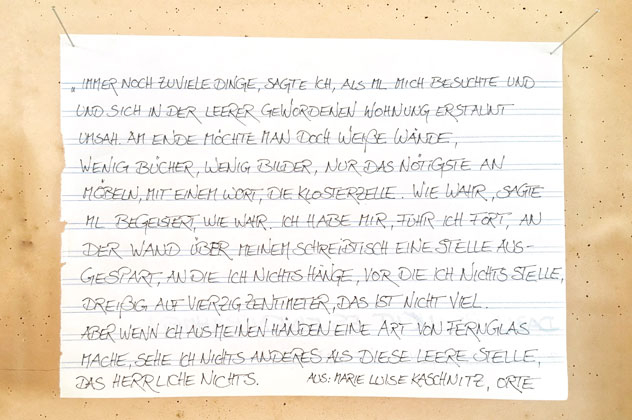 „IMMER NOCH ZUVIELE DINGE, SAGTE ICH, ALS ML MICH BESUCHTE UND
UND SICH IN DER LEERER GEWORDENEN WOHNUNG ERSTAUNT
UMSAH. AM ENDE MÖCHTE MAN DOCH WEIẞE WÄNDE,
WENIG BÜCHER, WENIG BILDER, NUR DAS NÖTIGSTE AN
MÖBELN, MIT EINEM WORT, DIE KLOSTERZELLE. WIE WAHR, SAGTE
ML BEGEISTERT, WIE WAHR. ICH HABE MIR, FUHR ICH FORT, AN
DER WAND ÜBER MEINEM SCHREIBTISCH EINE STELLE AUS-
GESPART, AN DIE ICH NICHTS HÄNGE, VOR DIE ICH NICHTS STELLE,
DREIẞIG AUF VIERZIG ZENTIMETER, DAS IST NICHT VIEL.
ABER WENN ICH AUS MEINEN HÄNDEN EINE ART VON FERNGLAS
MACHE, SEHE ICH NICHTS ANDERES ALS DIESE LEERE STELLE,
DAS HERRLICHE NICHTS. AUS: MARIE LUISE KASCHNITZ, ORTE